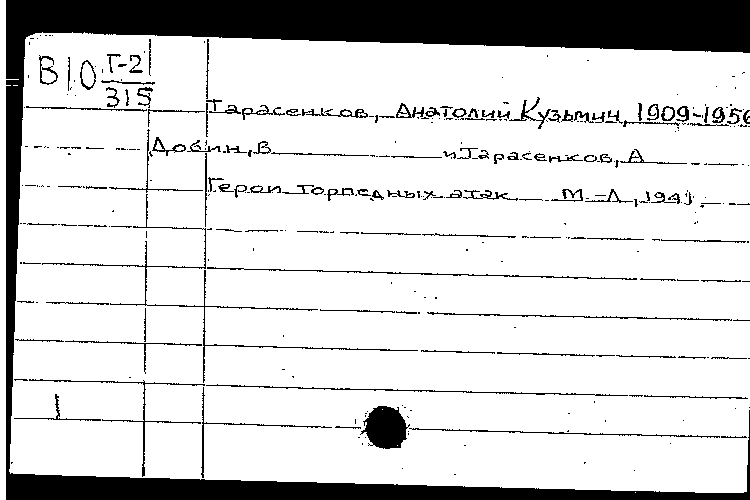 В10 Г-2
315
Тарасенков, Анатолий Кузьмич, 1909-1956
Добин, В и Тарасенков, А
Герои торпедных атак М.-Л, 1941.
1